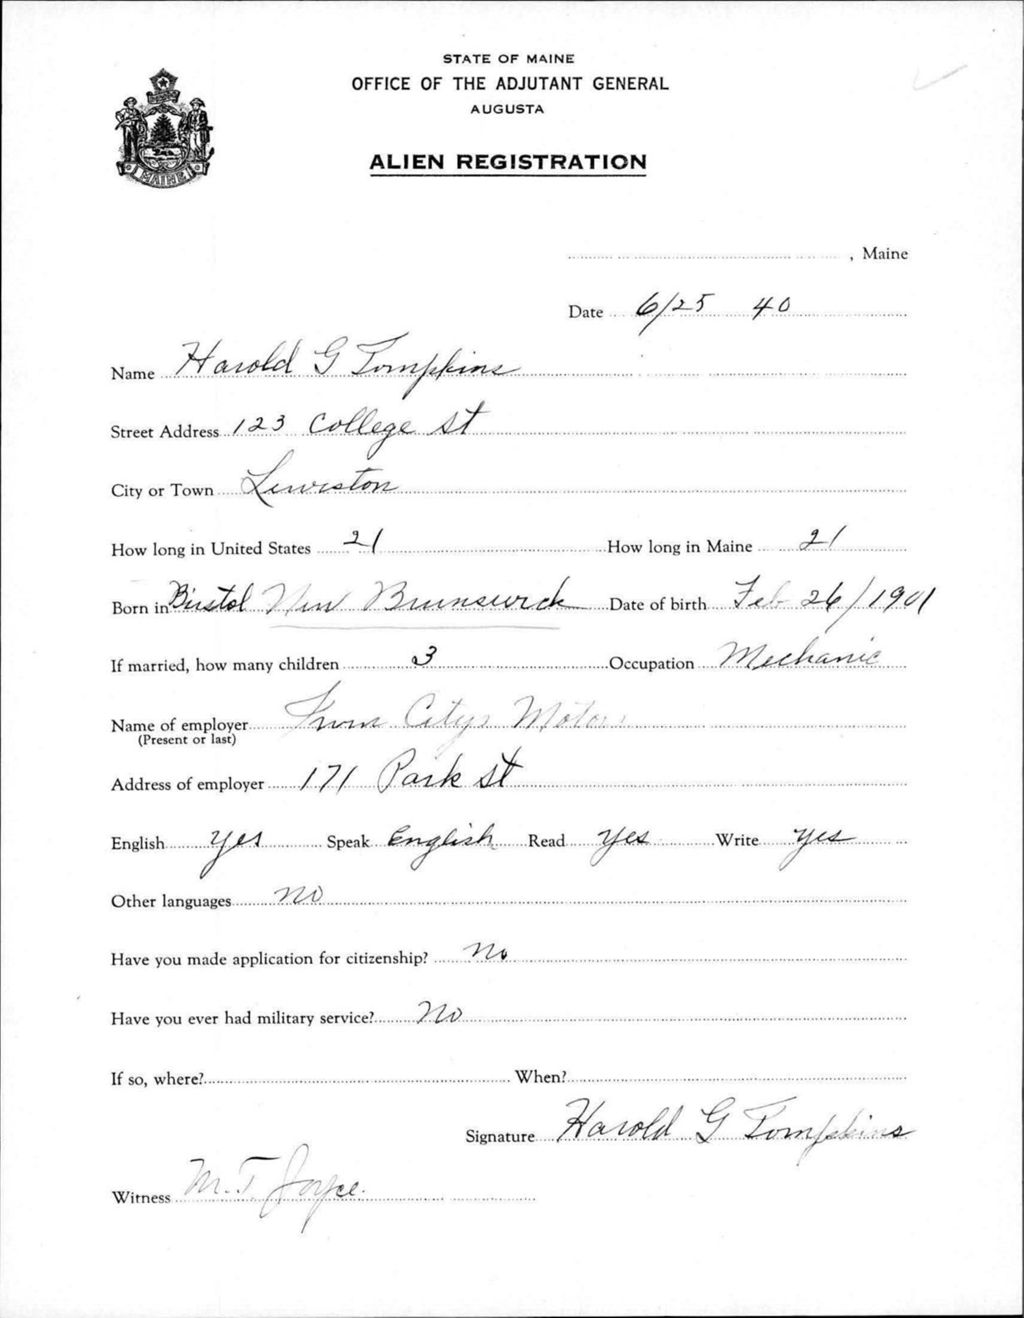 STATE OF MAINE
OFFICE OF THE ADJUTANT GENERAL
AUGUSTA
ALIEN REGISTRATION
MAINE
, Maine
Date 6/25 40
Name Harold G Tompkins
Street Address 123 College St
City or Town Lewiston
How long in United States 21 How long in Maine 21
Born in Bristol New Brunswick Date of birth Feb 26/1901
If married, how many children 3 Occupation Mechanic
Name of employer City Motors
(Present or last)
Address of employer 171 Park St
English yes Speak English Read yes Write yes
Other languages no
Have you made application for citizenship? no
Have you ever had military service? No
If so, where? When?
Signature Harold G Tompkins
Witness M. T. Joyce.